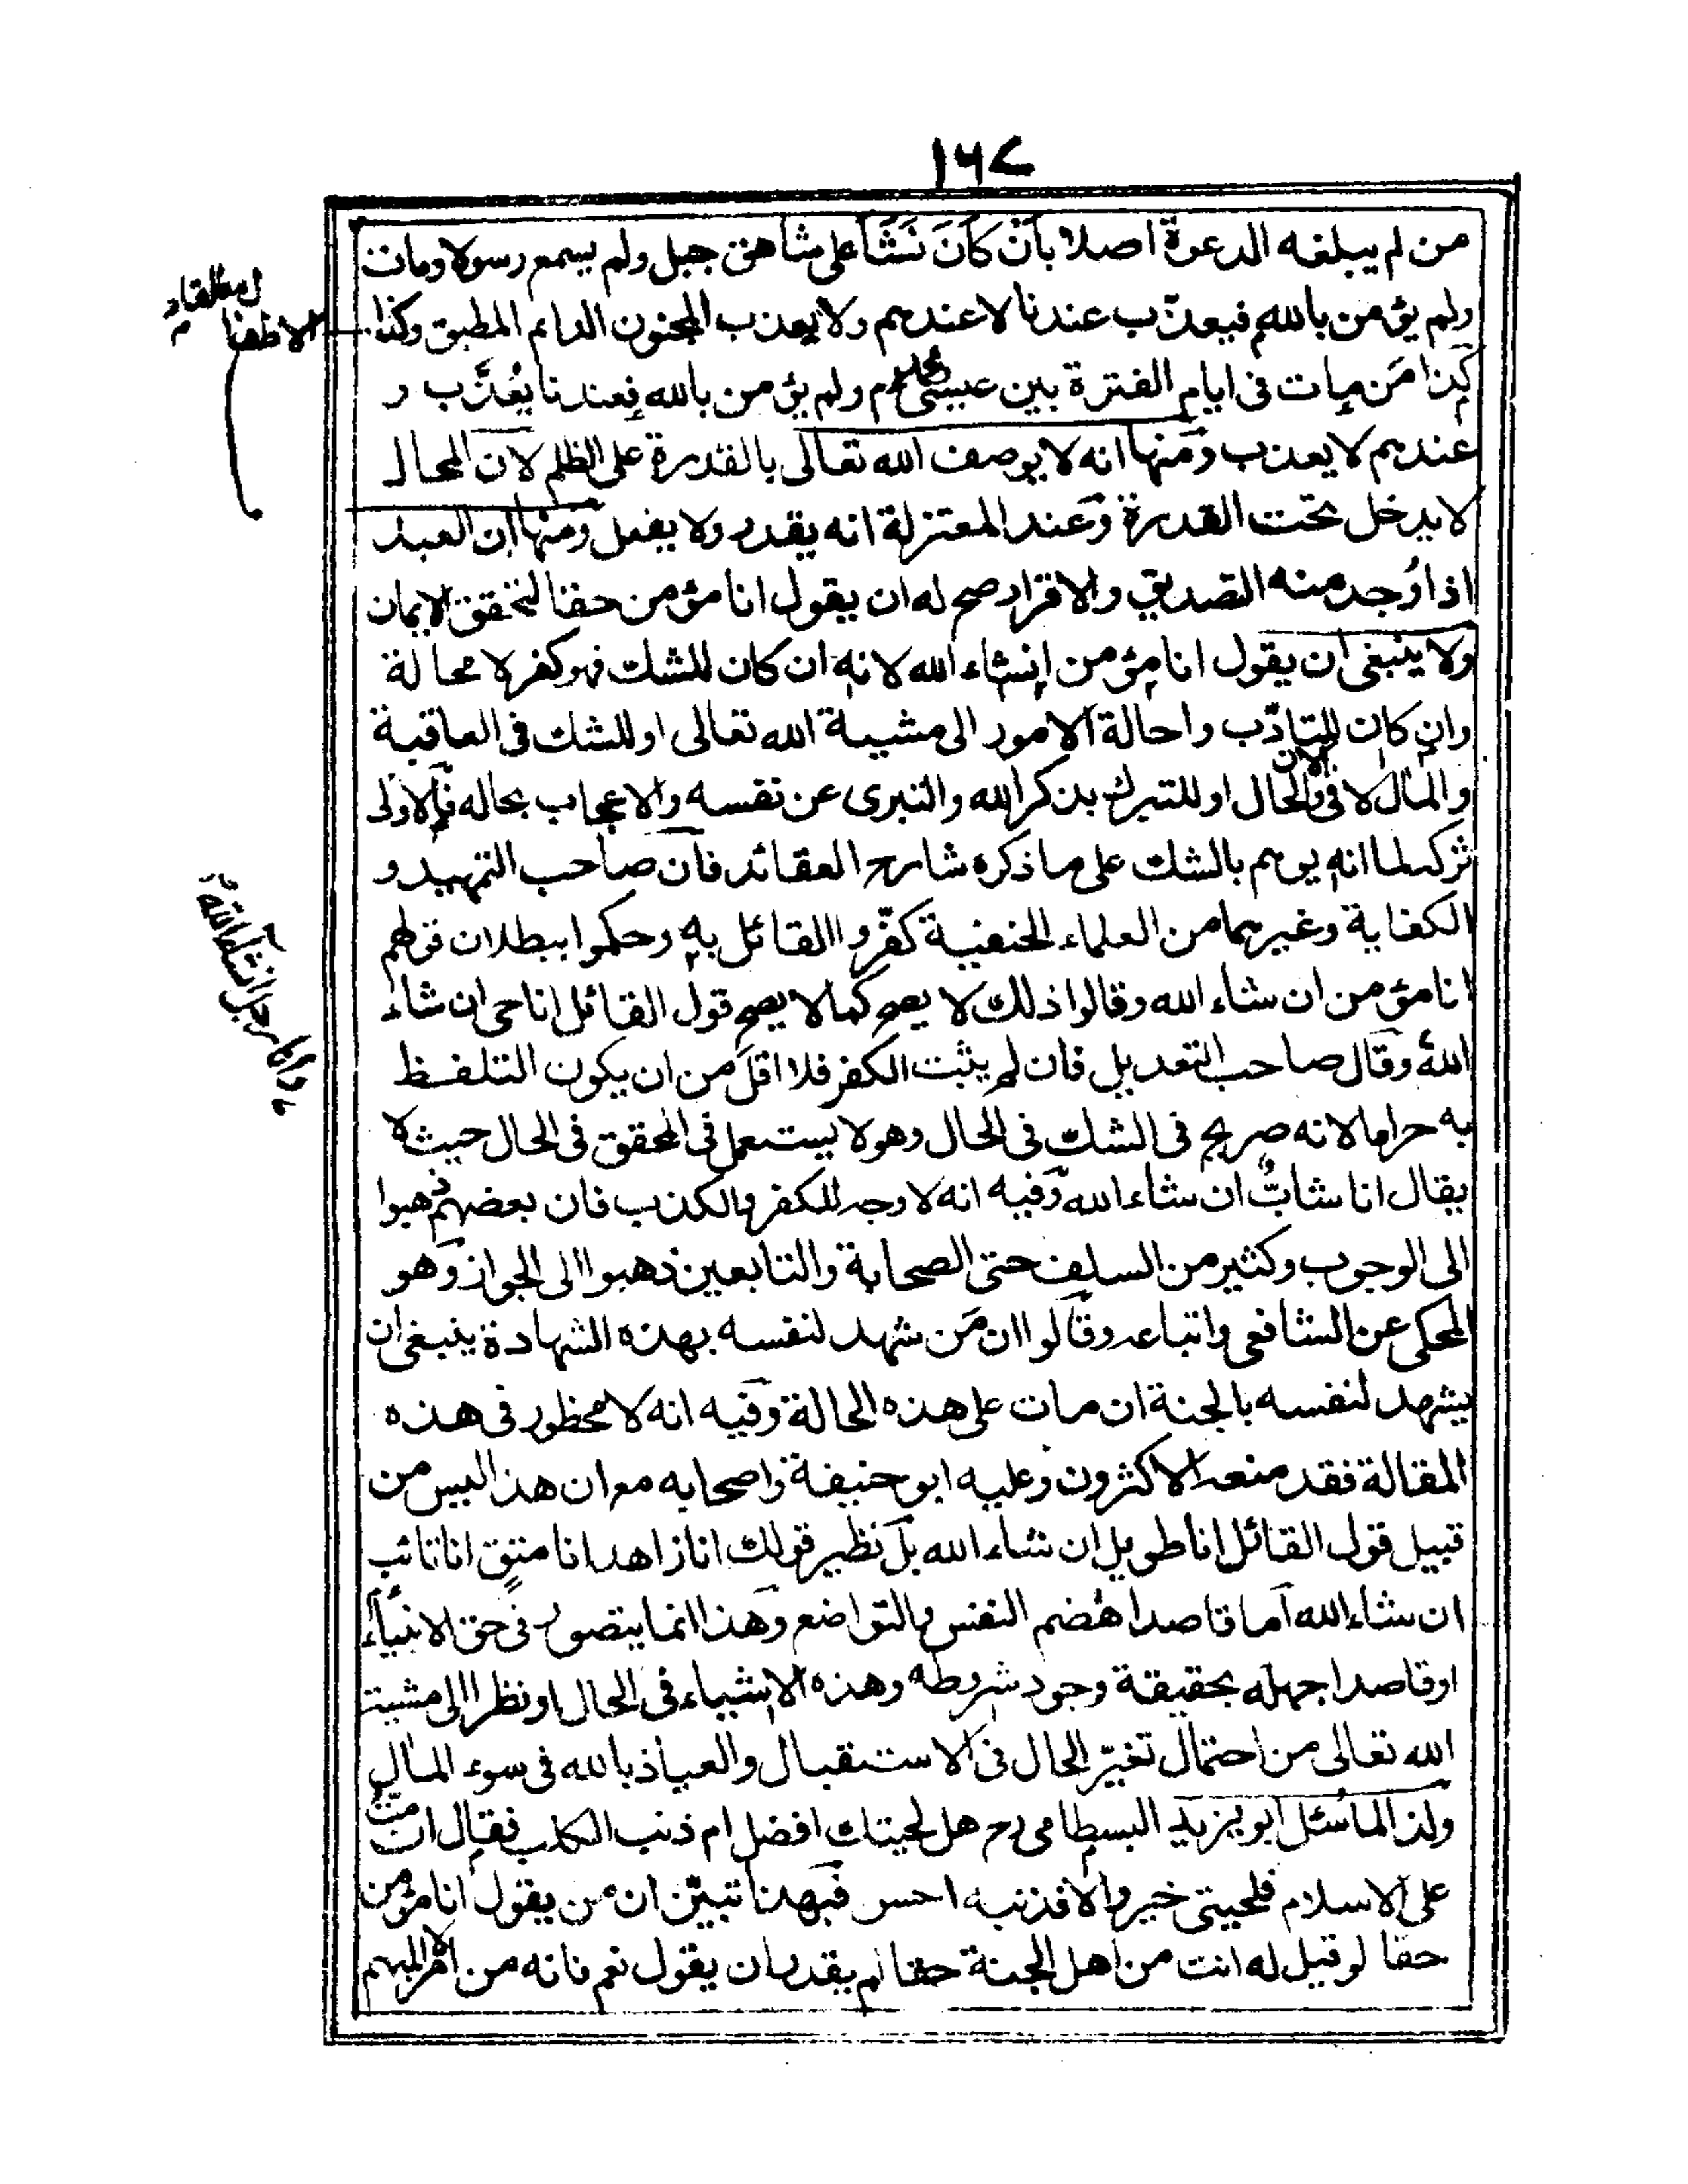 ١٦٧
من لم يبلغه الدعوة اصلا بأن كَانَ نَشَأ على شاهق جبل ولم يسمع رسولا ومات
ولم يؤمن بالله فيعذّب عندنا لا عندهم ولا يعذب المجنون الدائم المطبق وكذا
الاطفال مطلقا
كذا مَن مات فى ايام الفترة بين عيسى ومحمد م ولم يؤمن بالله فعندنا يُعذَّب و
عندهم لا يعذب ومنها انه لا يوصف الله تعالى بالقدرة على الظلم لان المحال
لا يدخل تحت القدرة وعند المعتزلة انه يقدر ولا يفعل ومنها ان العبد
اذا وُجد منه التصديق والاقرار صح له ان يقول انا مؤمن حقا لتحقق الايمان
ولا ينبغى ان يقول انا مؤمن انشاء الله لانه ان كان للشك فهو كفر لا محالة
وان كان للتادّب واحالة الامور الى مشيبة الله تعالى او للشك فى العاقبة
والمآل لا فى الآن والحال او للتبرك بذكر الله والتبرى عن نفسه والاعجاب بحاله فالاولى
تركه لما انه يوهم بالشك على ما ذكره شارح العقائد فان صاحب التمهيد و
الكفاية وغيرهما من العلماء الحنفية كفّروا القائل به وحكموا ببطلان قولهم
انا مؤمن ان شاء الله وقالوا ذلك لا يصح كما لا يصح قول القائل انا حى ان شاء
الله وقال صاحب التعديل فان لم يثبت الكفر فلا اقل من ان يكون التلفظ
به حراما لانه صريح فى الشك فى الحال وهو لا يستعمل فى المحقق فى الحال حيث لا
يقال انا شابٌ ان شاء الله وفيه انه لا وجه للكفر والكذب فان بعضهم ذهبوا
الى الوجوب وكثير من السلف حتى الصحابة والتابعين ذهبوا الى الجواز وهو
المحكى عن الشافعى واتباعه وقالوا ان مَن شهد لنفسه بهذه الشهادة ينبغى ان
يشهد لنفسه بالجنة ان مات على هذه الحالة وفيه انه لا محظور فى هذه
المقالة فقد منعه الاكثرون وعليه ابو حنيفة واصحابه مع ان هذا ليس من
قبيل قول القائل انا طويل ان شاء الله بل نظير قولك انا زاهد انا متقٍ انا تائب
ان شاء الله اما قاصدا هضم النفس والتواضع وهذا انما يتصور فى حق الانبياء
او قاصدا جهله بحقيقة وجود شروطه وهذه الاشياء فى الحال او نظرا الى مشية
الله تعالى من احتمال تغيّر الحال فى الاستقبال والعياذ بالله فى سوء المال
ولذا لما سُئل ابو يزيد البسطامى رح هل لحيتك افضل ام ذنب الكلب فقال ان متّ
على الاسلام فلحيتى خير والا فذنبه احسن فبهذا تبيّن ان من يقول انا مؤمن
حقا لو قيل له انت من اهل الجنة حقا لم يقدر ان يقول نعم فانه من الامر المبهم